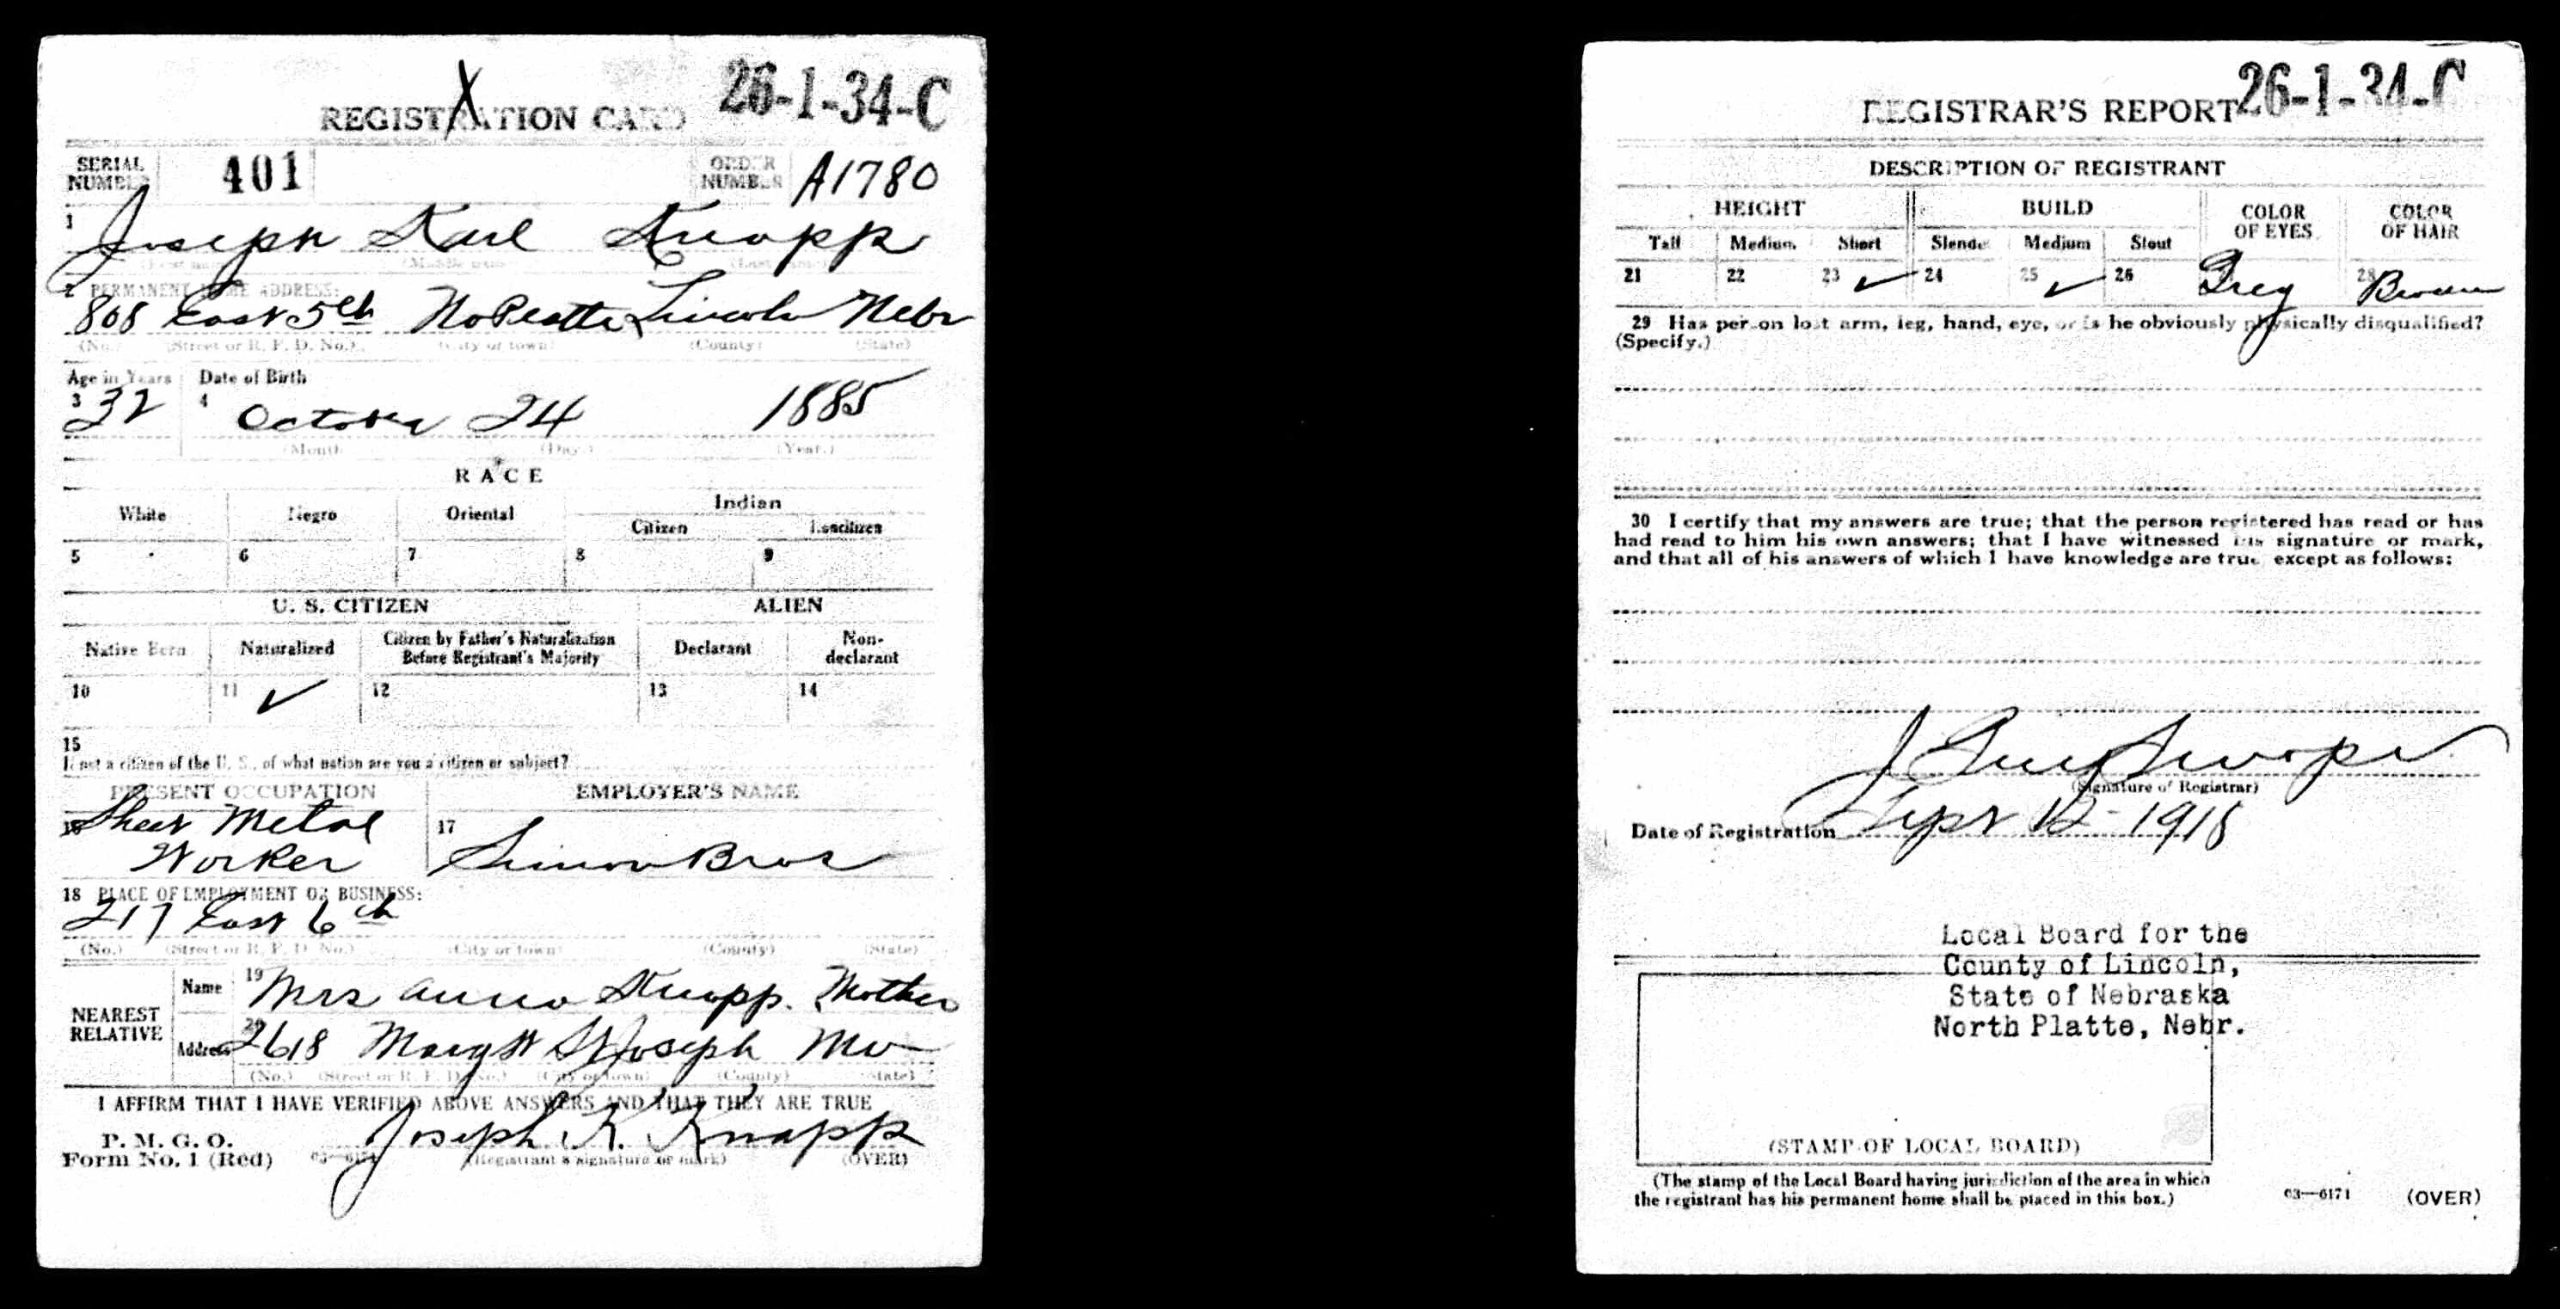 REGISTRATION CARD 26-1-34-C
SERIAL NUMBER 401 ORDER NUMBER A1780
1 Joseph Karl Knapp
(Middle name) (Last name)
2 PERMANENT HOME ADDRESS:
808 East 5th No Platte Lincoln Nebr
(No.) (Street or R. F. D. No.) (City or town) (County) (State)
Age in Years Date of Birth
3 32 4 October 24 1885
(Month) (Day.) (Year.)
RACE
White Negro Oriental Indian
Citizen Noncitizen
5 6 7 8 9
U. S. CITIZEN ALIEN
Native Born Naturalized Citizen by Father's Naturalization Before Registrant's Majority Declarant Non-declarant
10 11 ✓ 12 13 14
15
If not a citizen of the U. S., of what nation are you a citizen or subject?
PRESENT OCCUPATION EMPLOYER'S NAME
16 Sheet Metal Worker 17 Simon Bros
18 PLACE OF EMPLOYMENT OR BUSINESS:
217 East 6th
(No.) (Street or R. F. D. No.) (City or town) (County) (State)
NEAREST RELATIVE Name 19 Mrs Anna Knapp. Mother
Address 20 2618 Mary St St Joseph Mo
(No.) (Street or R. F. D. No.) (City or town) (County) (State)
I AFFIRM THAT I HAVE VERIFIED ABOVE ANSWERS AND THAT THEY ARE TRUE
P. M. G. O.
Form No. 1 (Red) 03—6171 Joseph K. Knapp
(Registrant's signature or mark) (OVER)
REGISTRAR'S REPORT 26-1-34-C
DESCRIPTION OF REGISTRANT
HEIGHT BUILD COLOR OF EYES COLOR OF HAIR
Tall Medium Short Slender Medium Stout
21 22 23 ✓ 24 25 ✓ 26 Grey 28 Brown
29 Has person lost arm, leg, hand, eye, or is he obviously physically disqualified?
(Specify.)
30 I certify that my answers are true; that the person registered has read or has
had read to him his own answers; that I have witnessed his signature or mark,
and that all of his answers of which I have knowledge are true, except as follows:
J Guy Swope
(Signature of Registrar)
Date of Registration Sept 12-1918
Local Board for the
County of Lincoln,
State of Nebraska
North Platte, Nebr.
(STAMP OF LOCAL BOARD)
(The stamp of the Local Board having jurisdiction of the area in which
the registrant has his permanent home shall be placed in this box.) 03—6171 (OVER)